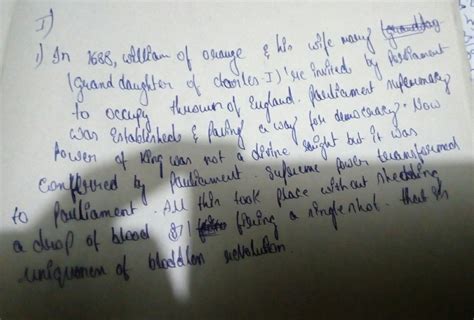 I)
i) In 1688, william of orange & his wife mary
(grand daughter of charles-I) 're invited by Parliament
to occupy thrown of England. Parliament supremacy
was established & paving a way for democracy. Now
Power of King was not a divine right but it was
conferred by Parliament. Supreme power transformed
to Parliament. All this took place without shedding
a drop of blood or firing a single shot. that is
uniqueness of bloodless revolution.